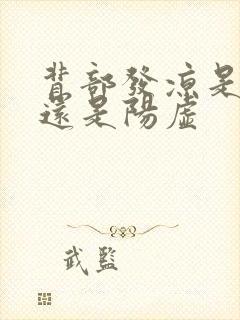 背部發涼是
還是陽虛
武監